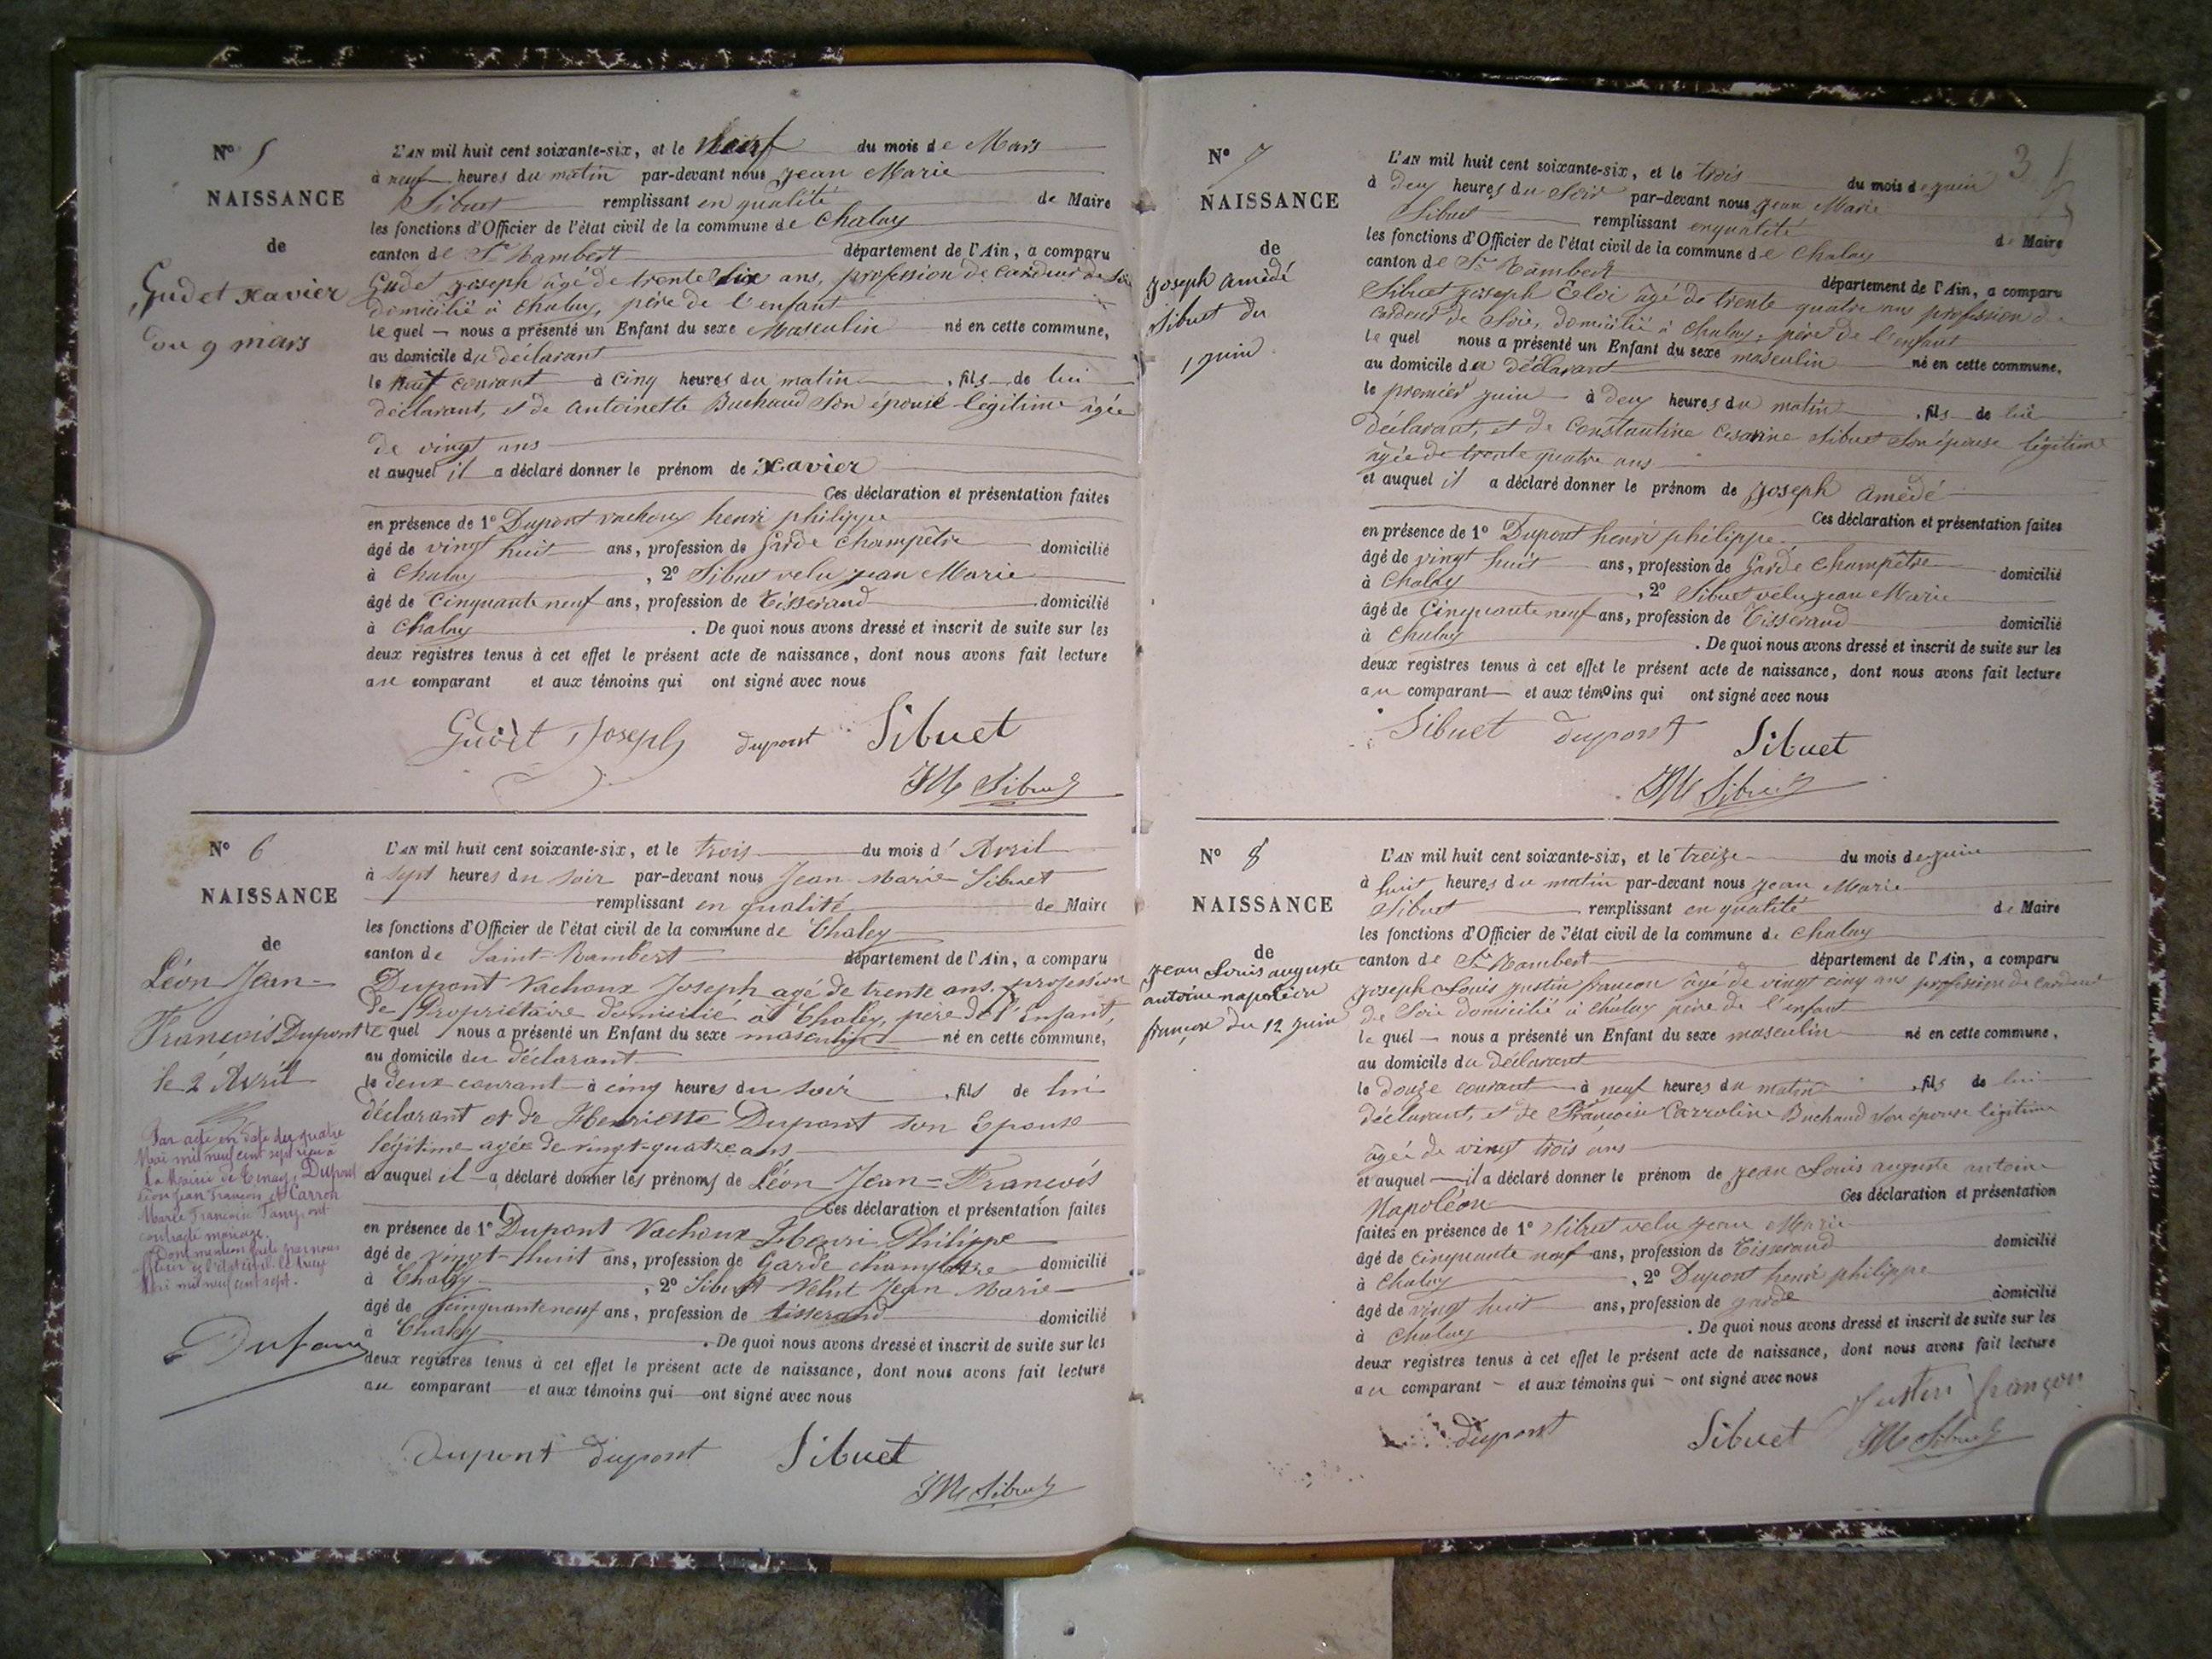 N° 5
NAISSANCE
de
Gudet Xavier
du 9 mars
L'AN mil huit cent soixante-six, et le Neuf du mois de Mars
à neuf heures du matin par-devant nous Jean Marie
Sibuet remplissant en qualité de Maire
les fonctions d'Officier de l'état civil de la commune de Chaley
canton de St Rambert département de l'Ain, a comparu
Gudet Joseph âgé de trente six ans, profession de Cardeur de Soie
domicilié à Chaley, père de l'enfant
le quel nous a présenté un Enfant du sexe Masculin né en cette commune,
au domicile du déclarant
le neuf courant à cinq heures du matin, fils de lui
déclarant, et de Antoinette Buchaud son épouse légitime âgée
de vingt ans
et auquel il a déclaré donner le prénom de Xavier
Ces déclaration et présentation faites
en présence de 1° Dupont vachoux henri philippe
âgé de vingt huit ans, profession de Garde Champêtre domicilié
à Chaley, 2° Sibuet velu Jean Marie
âgé de Cinquante neuf ans, profession de Tisserand domicilié
à Chaley. De quoi nous avons dressé et inscrit de suite sur les
deux registres tenus à cet effet le présent acte de naissance, dont nous avons fait lecture
au comparant et aux témoins qui ont signé avec nous
Gudet Joseph dupont Sibuet
JM Sibuet
N° 6
NAISSANCE
de
Léon Jean-
François Dupont
le 2 Avril
Par acte en date du quatre
Mai mil neuf cent sept reçu à
la Mairie de Tenay, Dupont
Léon Jean François et Carron
Marie Françoise Fany ont
contracté mariage.
Dont mention faite par nous
officier de l'état civil le
Mai mil neuf cent sept.
Dufour
L'AN mil huit cent soixante-six, et le trois du mois d'Avril
à sept heures du soir par-devant nous Jean Marie Sibuet
remplissant en qualité de Maire
les fonctions d'Officier de l'état civil de la commune de Chaley
canton de Saint-Rambert département de l'Ain, a comparu
Dupont Vachoux Joseph agé de trente ans profession
de Propriétaire domicilié à Chaley, père de l'Enfant,
le quel nous a présenté un Enfant du sexe masculin né en cette commune,
au domicile du déclarant
le deux courant à cinq heures du soir, fils de lui
déclarant et de Henriette Dupont son Epouse
légitime agée de vingt-quatre ans
et auquel il a déclaré donner les prénoms de Léon Jean-François
Ces déclaration et présentation faites
en présence de 1° Dupont Vachoux Henri Philippe
âgé de vingt-huit ans, profession de Garde champêtre domicilié
à Chaley, 2° Sibuet Velut Jean Marie
âgé de cinquante neuf ans, profession de tisserand domicilié
à Chaley. De quoi nous avons dressé et inscrit de suite sur les
deux registres tenus à cet effet le présent acte de naissance, dont nous avons fait lecture
au comparant et aux témoins qui ont signé avec nous
Dupont dupont Sibuet
JM Sibuet
3
N° 7
NAISSANCE
de
Joseph Amédé
Sibuet du
1 juin
L'AN mil huit cent soixante-six, et le trois du mois de juin
à deux heures du Soir par-devant nous Jean Marie
Sibuet remplissant en qualité de Maire
les fonctions d'Officier de l'état civil de la commune de Chaley
canton de St Rambert département de l'Ain, a comparu
Sibuet Joseph Eloi âgé de trente quatre ans profession de
cardeur de Soie, domicilié à Chaley, père de l'enfant
le quel nous a présenté un Enfant du sexe masculin né en cette commune,
au domicile du déclarant
le premier juin à deux heures du matin, fils de lui
déclarant, et de Constantine Césarine Sibuet son épouse légitime
âgée de trente quatre ans
et auquel il a déclaré donner le prénom de Joseph Amédé
Ces déclaration et présentation faites
en présence de 1° Dupont henri philippe
âgé de vingt huit ans, profession de Garde Champêtre domicilié
à Chaley, 2° Sibuet velu Jean Marie
âgé de Cinquante neuf ans, profession de Tisserand domicilié
à Chaley. De quoi nous avons dressé et inscrit de suite sur les
deux registres tenus à cet effet le présent acte de naissance, dont nous avons fait lecture
au comparant et aux témoins qui ont signé avec nous
Sibuet dupont Sibuet
JM Sibuet
N° 8
NAISSANCE
de
Jean Louis auguste
antoine napoléon
françon du 12 juin
L'AN mil huit cent soixante-six, et le treize du mois de juin
à huit heures du matin par-devant nous Jean Marie
Sibuet remplissant en qualité de Maire
les fonctions d'Officier de l'état civil de la commune de Chaley
canton de St Rambert département de l'Ain, a comparu
Joseph Louis Justin françon âgé de vingt cinq ans profession de Cardeur
de Soie domicilié à Chaley père de l'enfant
le quel nous a présenté un Enfant du sexe masculin né en cette commune,
au domicile du déclarant
le douze courant à neuf heures du matin, fils de lui
déclarant, et de Françoise Carroline Buchaud son épouse légitime
âgée de vingt trois ans
et auquel il a déclaré donner le prénom de Jean Louis auguste antoine
Napoléon Ces déclaration et présentation
faites en présence de 1° Sibuet velu Jean Marie
âgé de cinquante neuf ans, profession de Tisserand domicilié
à Chaley, 2° Dupont henri philippe
âgé de vingt huit ans, profession de garde domicilié
à Chaley. De quoi nous avons dressé et inscrit de suite sur les
deux registres tenus à cet effet le présent acte de naissance, dont nous avons fait lecture
au comparant et aux témoins qui ont signé avec nous
Justin françon
dupont Sibuet JM Sibuet